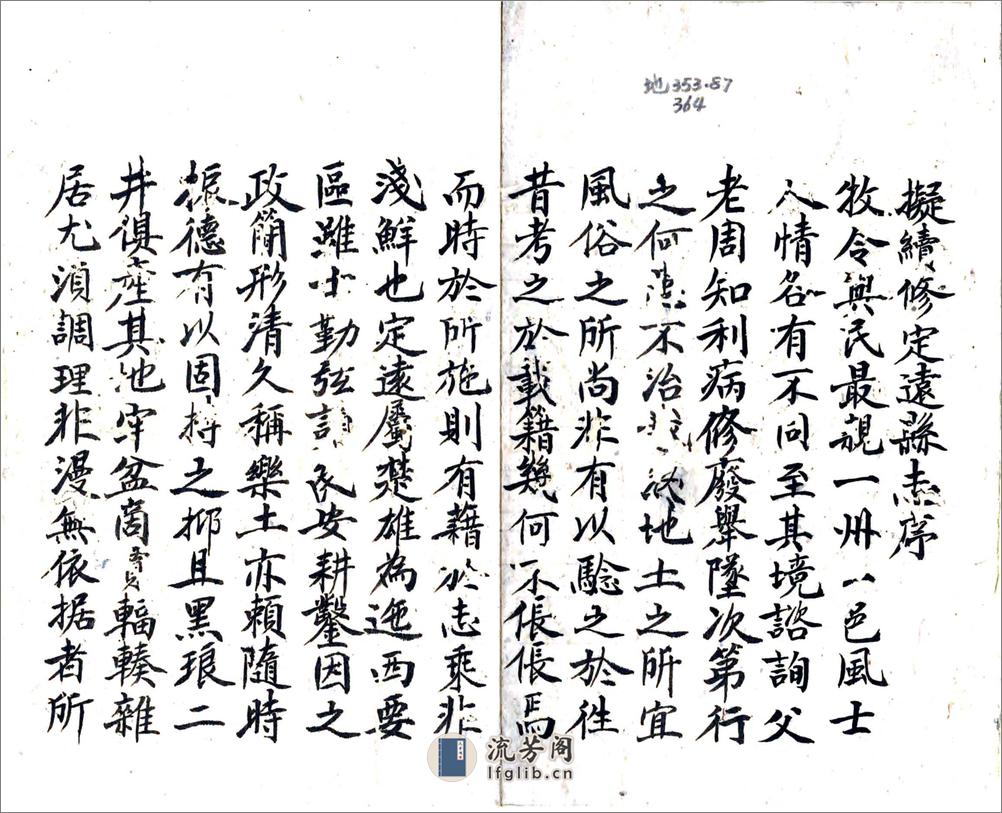 地353.87
364
擬續修定遠縣志序
牧令與民最親一州一邑風土
人情各有不同至其境諮詢父
老周知利病修廢舉墜次第行
之何患不治 地土之所宜
風俗之所尚非有以騐之於徃
昔考之於載籍幾何不倀倀焉
而時於所施則有藉於志乘非
淺鮮也定遠屬楚雄為迤西要
區雖小勤 安耕鑿因之
政簡形清久稱樂土亦賴隨時
振德有以固持之抑且黑琅二
井俱產其池牢盆啇 輻輳雜
居尤湏調理非漫無依据者所
流芳阁
lfglib.cn